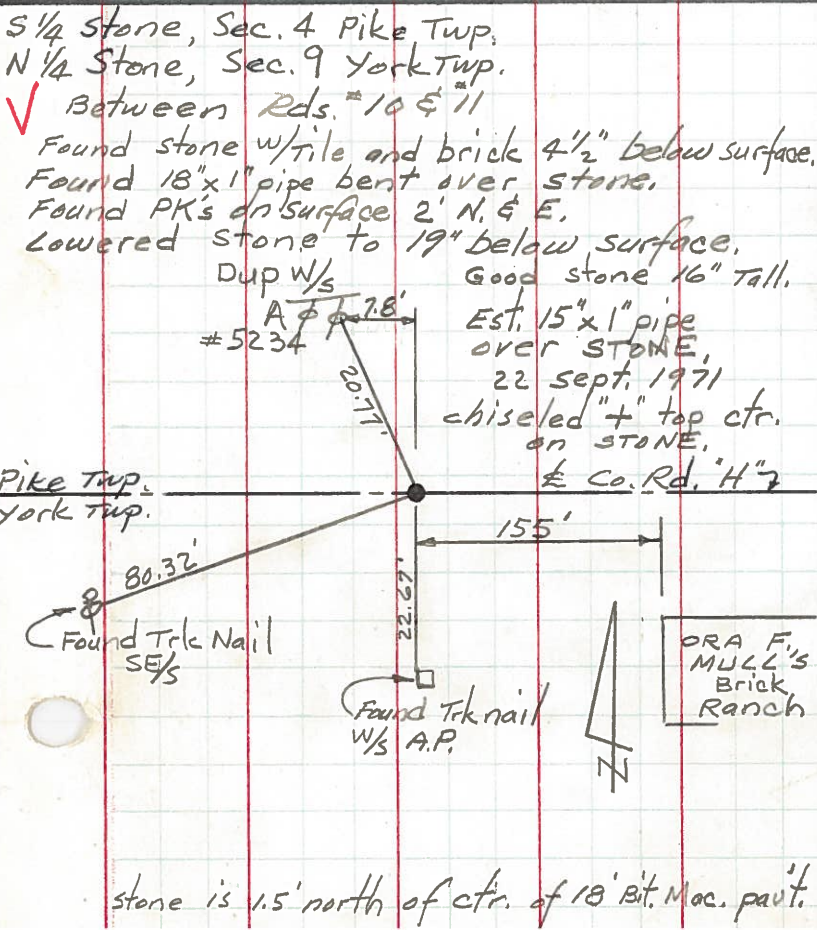 S 1/4 stone, Sec. 4 Pike Twp.
N 1/4 Stone, Sec. 9 York Twp.
√ Between Rds. #10 & #11
Found stone w/Tile and brick 4 1/2" below surface.
Found 18"x1" pipe bent over stone.
Found PK's on surface 2' N. & E.
Lowered stone to 19" below surface.
Dup W/s
Good stone 16" Tall.
A
7.8'
#5234
Est. 15"x1" pipe
over STONE,
22 Sept. 1971
20.77'
chiseled "+" top ctr.
on STONE.
Pike Twp.
℄ Co. Rd. "H"
York Twp.
155'
80.32'
22.67'
Found Trk Nail
SE/s
Found Trk nail
W/s A.P.
ORA F.
MULL'S
Brick
Ranch
N
stone is 1.5' north of ctr. of 18' Bit. Mac. pav't.